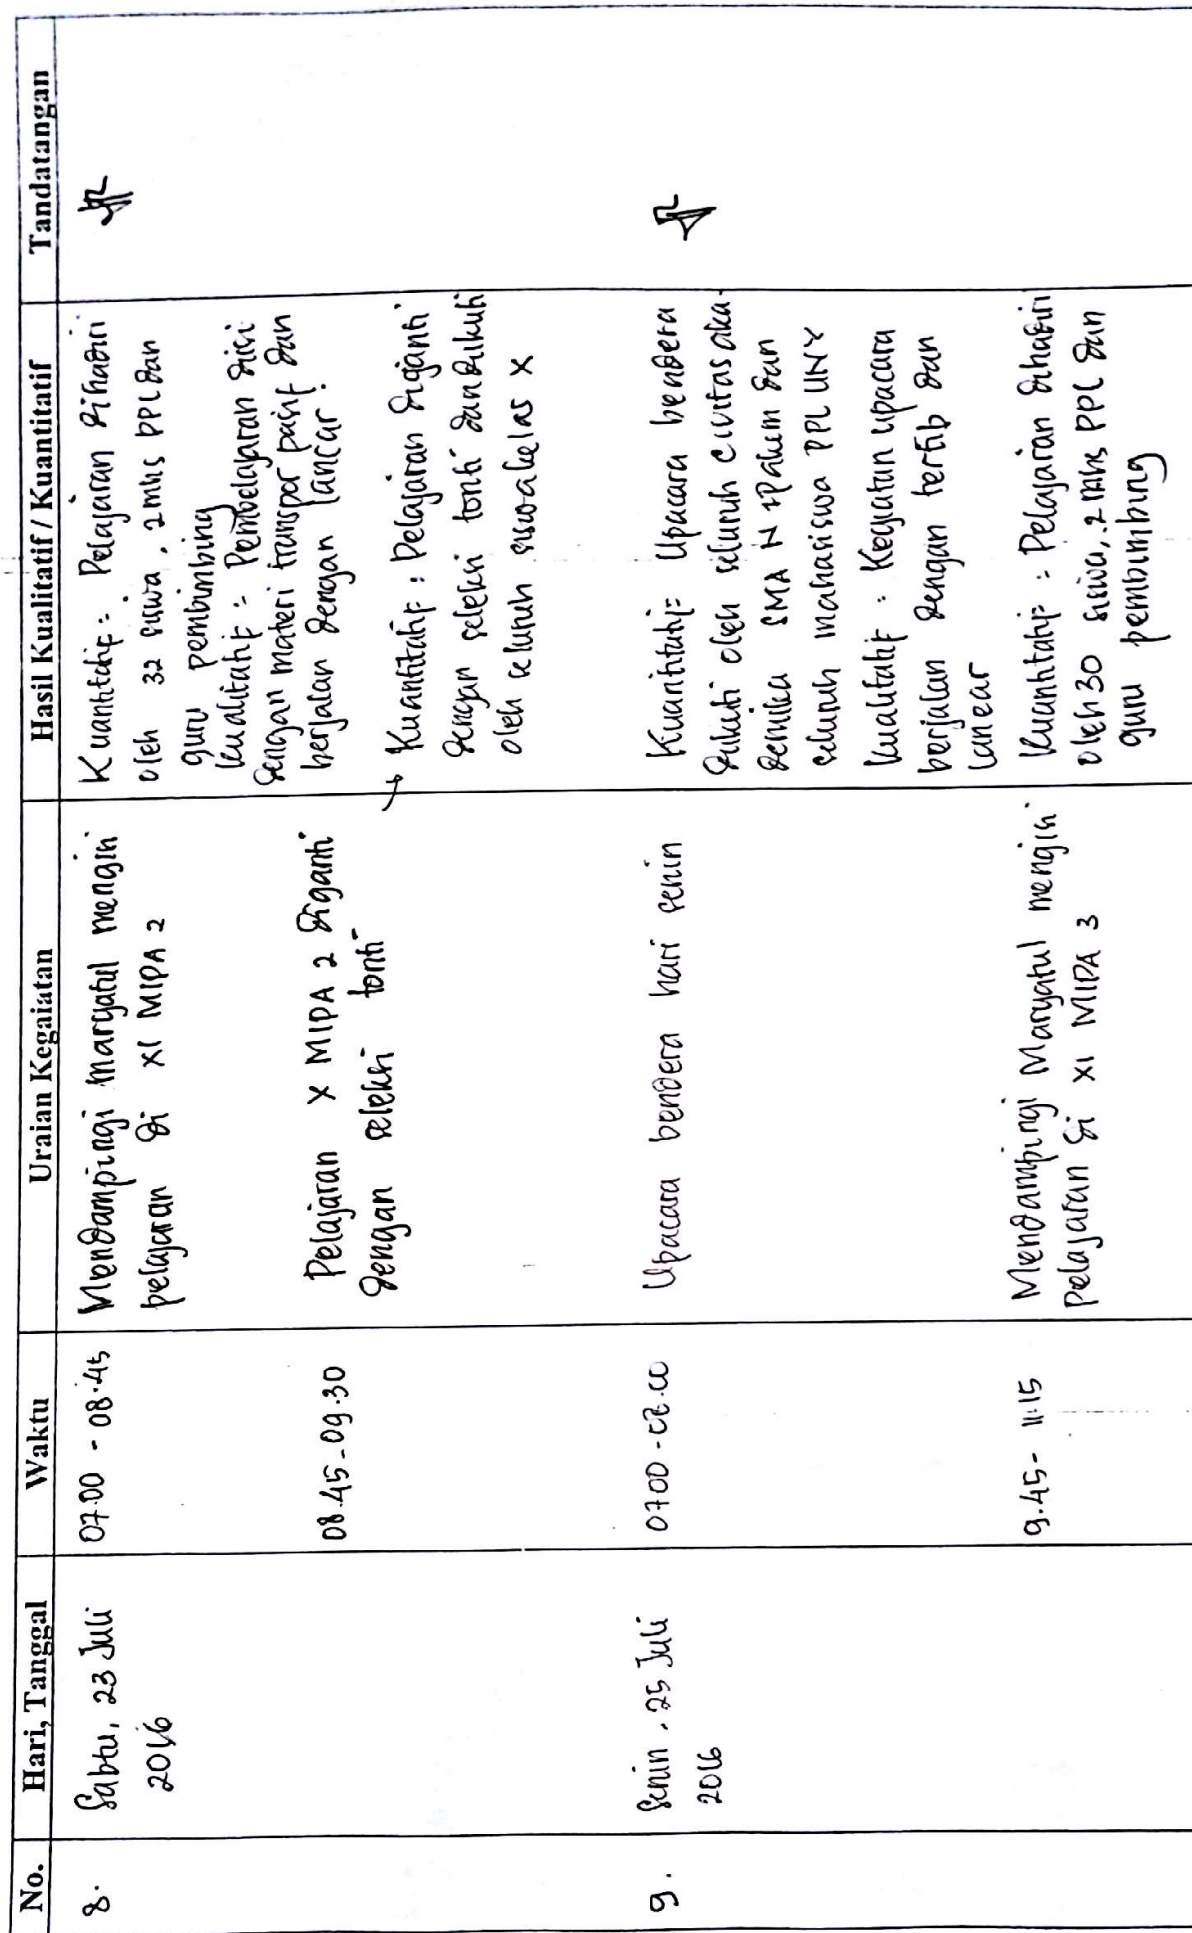 No. Hari, Tanggal Waktu Uraian Kegaiatan Hasil Kualitatif / Kuantitatif Tandatangan
8.
Sabtu, 23 Juli
2016
07.00 - 08.45
Mendampingi maryatul mengisi
pelajaran di XI MIPA 2
Kuantitatif : Pelajaran dihadiri
oleh 32 siswa, 2 mhs PPL dan
guru pembimbing
kualitatif : Pembelajaran diisi
dengan materi transpor pasif dan
berjalan dengan lancar.
08.45 - 09.30
Pelajaran X MIPA 2 diganti
dengan seleksi tonti
→ Kuantitatif : Pelajaran diganti
dengan seleksi tonti dan diikuti
oleh seluruh siswa kelas X
9.
Senin, 25 Juli
2016
07.00 - 08.00
Upacara bendera hari senin
Kuantitatif : Upacara bendera
diikuti oleh seluruh civitas aka
demika SMA N 1 Pakem dan
seluruh mahasiswa PPL UNY
Kualitatif : Kegiatan upacara
berjalan dengan tertib dan
lancar
9.45 - 11.15
Mendampingi Maryatul mengisi
Pelajaran di XI MIPA 3
Kuantitatif : Pelajaran dihadiri
oleh 30 siswa, 2 mhs PPL dan
guru pembimbing